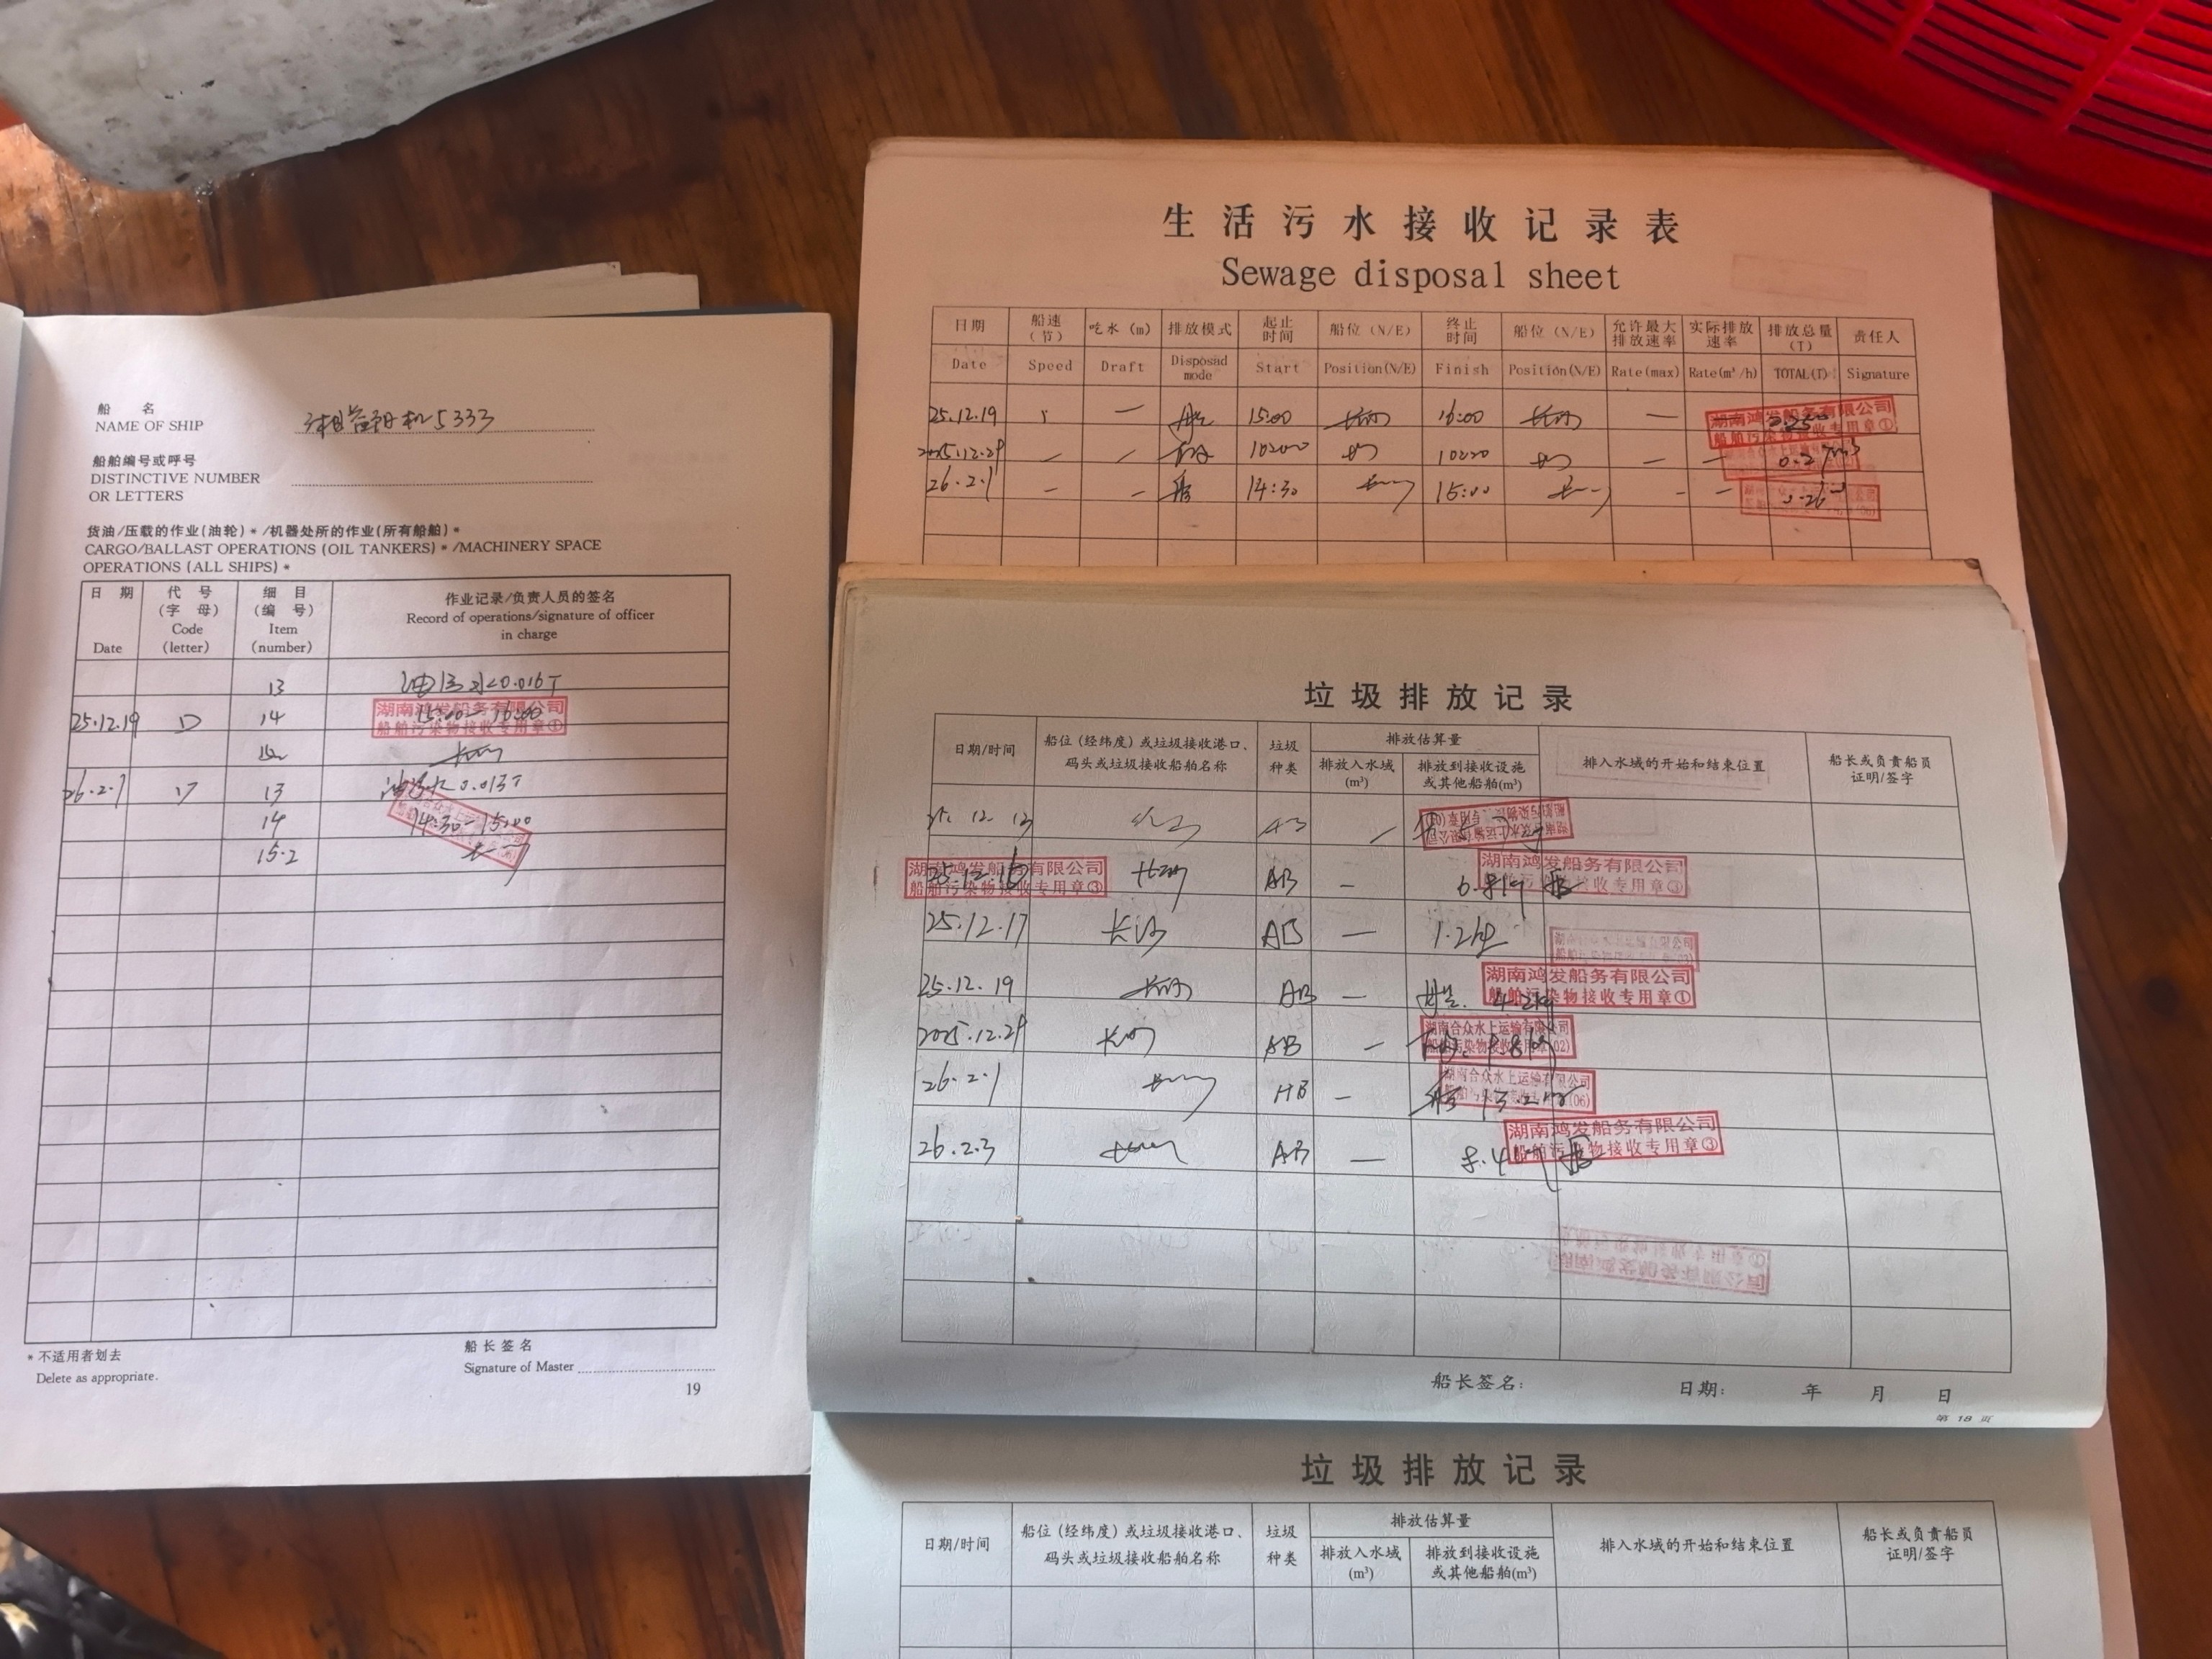 船 名
NAME OF SHIP
机5333
船舶编号或呼号
DISTINCTIVE NUMBER
OR LETTERS
货油/压载的作业(油轮)*/机器处所的作业(所有船舶)*
CARGO/BALLAST OPERATIONS (OIL TANKERS)*/MACHINERY SPACE
OPERATIONS (ALL SHIPS)*
日 期 代 号 细 目 作业记录/负责人员的签名
(字 母) (编 号) Record of operations/signature of officer
Code Item in charge
Date (letter) (number)
13 油污水0.016T
25.12.19 D 14 15:00-16:00
湖南鸿发船务有限公司
船舶污染物接收专用章①
26.2.1 D 13 油污水0.013T
14 14:30-15:00
15.2
*不适用者划去
Delete as appropriate.
船长签名
Signature of Master
19
生活污水接收记录表
Sewage disposal sheet
日期 船速(节) 吃水(m) 排放模式 起止时间 船位(N/E) 终止时间 船位(N/E) 允许最大排放速率 实际排放速率 排放总量(T) 责任人
Date Speed Draft Disposad mode Start Position(N/E) Finish Position(N/E) Rate(max) Rate(m³/h) TOTAL(T) Signature
25.12.19 — 15:00 16:00 —
湖南鸿发船务有限公司
船舶污染物接收专用章①
2025.12.29 — — — —
26.2.1 — — 14:30 15:00 — — 0.26
垃圾排放记录
日期/时间 船位(经纬度)或垃圾接收港口、码头或垃圾接收船舶名称 垃圾种类 排放估算量 排入水域的开始和结束位置 船长或负责船员证明/签字
排放入水域(m³) 排放到接收设施或其他船舶(m³)
25.12.13 AB
湖南合众水上运输有限公司
25.12.16 AB —
湖南鸿发船务有限公司
船舶污染物接收专用章③
湖南鸿发船务有限公司
船舶污染物接收专用章③
25.12.17 长沙 AB —
湖南合众水上运输有限公司
25.12.19 长沙 AB — 4.2kg
湖南鸿发船务有限公司
船舶污染物接收专用章①
2025.12.29 长沙 AB —
湖南合众水上运输有限公司
船舶污染物接收专用章(02)
26.2.1 AB —
湖南合众水上运输有限公司
(06)
26.2.3 AB —
湖南鸿发船务有限公司
船舶污染物接收专用章③
船长签名: 日期: 年 月 日
第 18 页
垃圾排放记录
日期/时间 船位(经纬度)或垃圾接收港口、码头或垃圾接收船舶名称 垃圾种类 排放估算量 排入水域的开始和结束位置 船长或负责船员证明/签字
排放入水域(m³) 排放到接收设施或其他船舶(m³)